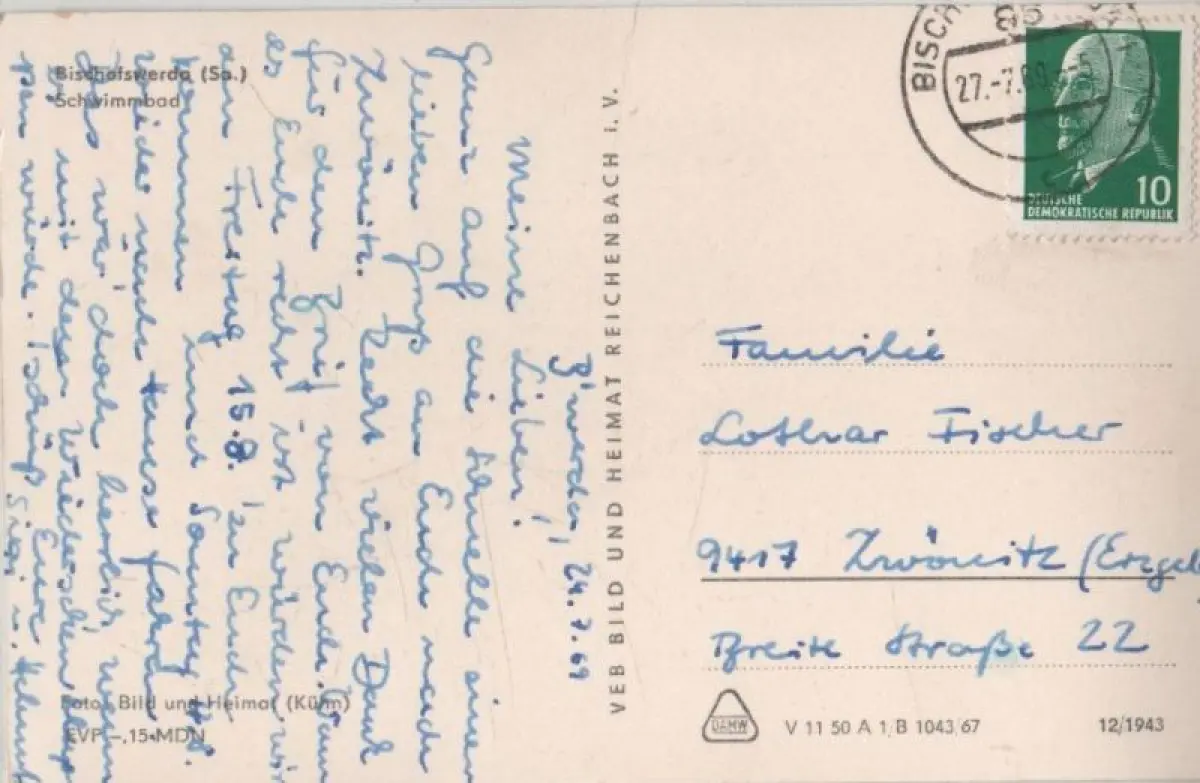 Bischofswerda (Sa.)
Schwimmbad
B'werda, 24.7.69
Meine Lieben!
Ganz auf die Schnelle einen
lieben Gruß an Euch nach
Zwönitz. Recht vielen Dank
für den Brief von Euch. Wenn
es Euch recht ist würden wir
am Freitag 15.8. zu Euch
kommen und Samstag
wieder nach Hause fahren.
Das wär doch herrlich wenn
es mit dem Wiedersehen klap-
pen würde. Tschüß Eure
Sigi u. Helmut
Foto: Bild und Heimat (Kühn)
EVP -,15 MDN
VEB BILD UND HEIMAT REICHENBACH i. V.
BISCH
27.-7.69
DEUTSCHE
DEMOKRATISCHE REPUBLIK
10
Familie
Lothar Fischer
9417 Zwönitz (Erzgeb
Breite Straße 22
DAMW
V 11 50 A 1/B 1043/67
12/1943